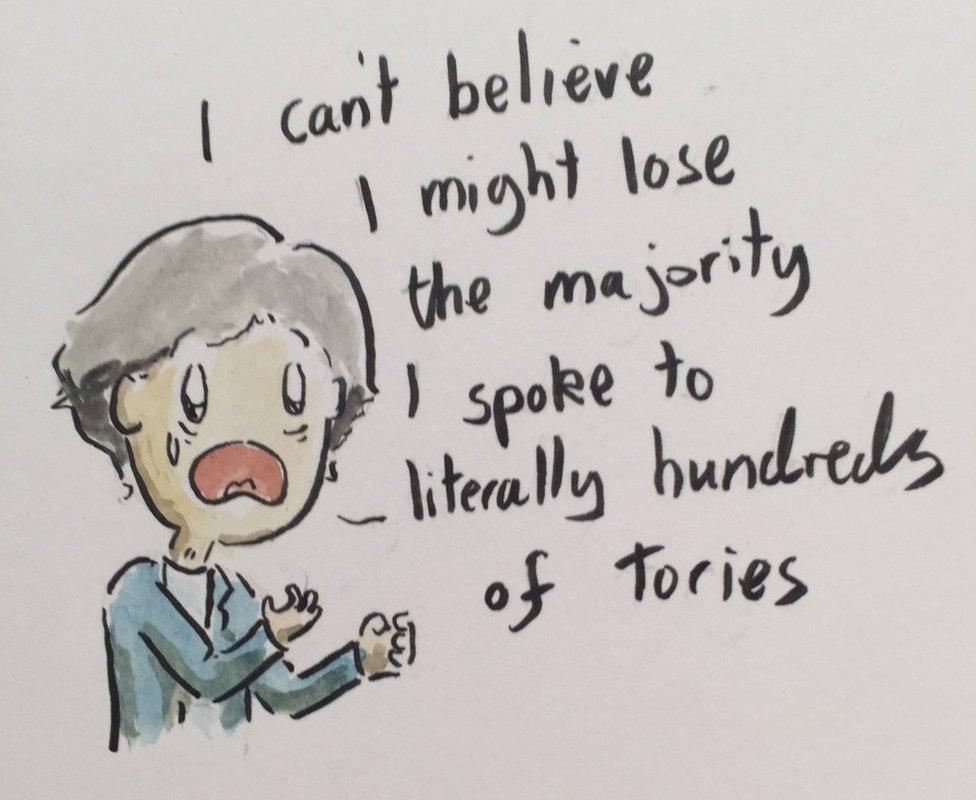 I can't believe
I might lose
the majority
I spoke to
literally hundreds
of Tories